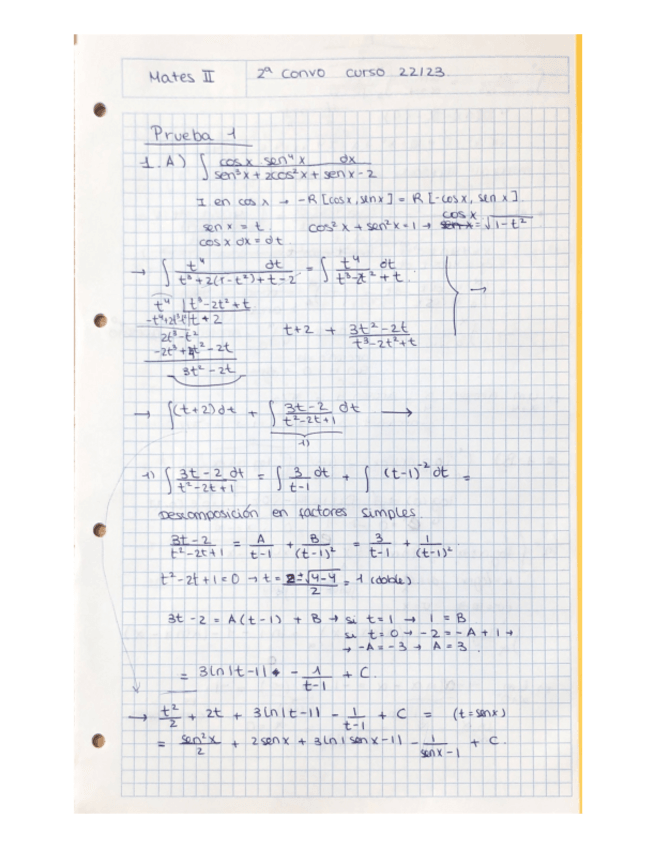 Mates II
2ª Convo curso 22/23
Prueba 1
1. A) ∫ cosx sen⁴x dx / sen³x + 2cos²x + senx - 2
I en cos x → -R [cosx, senx] = R [-cosx, senx]
senx = t cos²x + sen²x = 1 → cosx = √1-t²
cosx dx = dt
→ ∫ t⁴ dt / t³ + 2(1-t²) + t - 2 = ∫ t⁴ dt / t³ - 2t² + t →
t⁴ | t³ - 2t² + t
-t⁴ + 2t³ - t² t + 2
2t³ - t² t + 2 + 3t² - 2t / t³ - 2t² + t
-2t³ + 4t² - 2t
3t² - 2t
→ ∫ (t+2) dt + ∫ 3t-2 / t²-2t+1 dt →
1)
1) ∫ 3t-2 dt / t²-2t+1 = ∫ 3 / t-1 dt + ∫ (t-1)⁻² dt =
Descomposición en factores simples
3t-2 / t²-2t+1 = A / t-1 + B / (t-1)² = 3 / t-1 + 1 / (t-1)²
t² - 2t + 1 = 0 → t = 2 ± √4-4 / 2 = 1 (doble)
3t - 2 = A(t-1) + B → si t = 1 → 1 = B
si t = 0 → -2 = -A + 1 →
→ -A = -3 → A = 3.
= 3ln|t-1| - 1 / t-1 + C.
→ t² / 2 + 2t + 3ln|t-1| - 1 / t-1 + C = (t = senx)
= sen²x / 2 + 2senx + 3ln|senx-1| - 1 / senx-1 + C.